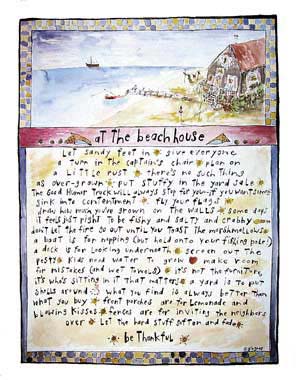 at The beach house
Let sandy feet in give everyone
a turn in the captain's chair plan on
a little rust there's no such thing
as over-grown put stuffy in the yard sale
The Good Humor Truck will always stop for you if you want some
sink into contentment fly your flags
draw how much you've grown on the walls some days
it feels just right to be fishy and salty and crabby
don't let the fire go out until you toast the marshmallows
a boat is for napping (but hold onto your fishing pole!)
a deck is for looking underneath screen out the
pests kids need water to grow make room
for mistakes (and wet towels) it's not the furniture,
it's who's sitting in it that matters a yard is to put
shells around what you find is always better than
what you buy front porches are for lemonade and
blowing kisses fences are for inviting the neighbors
over Let the hard stuff soften and fade
be thankful